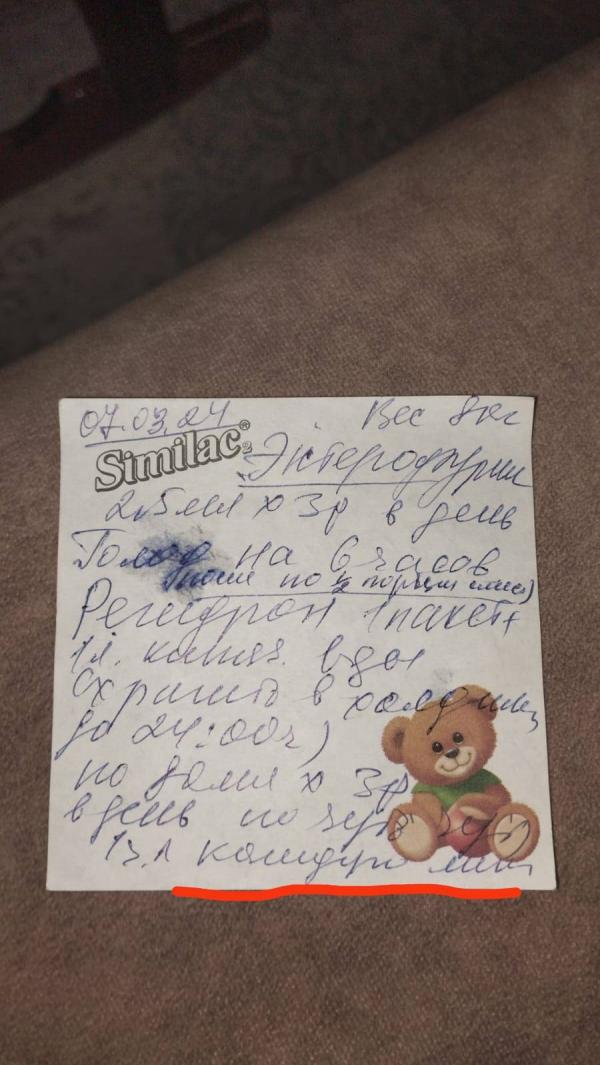 07.03.24 Вес 8кг
Similac®
Энтерофурил
2,5мл х 3р в день
Голод на 6 часов
(после по ½ порции смеси)
Регидрон 1пакет+
1л. кипяч. воды
(хранить в холодиль
до 24:00ч)
по 80мл х 3р
в день по
1ч.л каждую мин